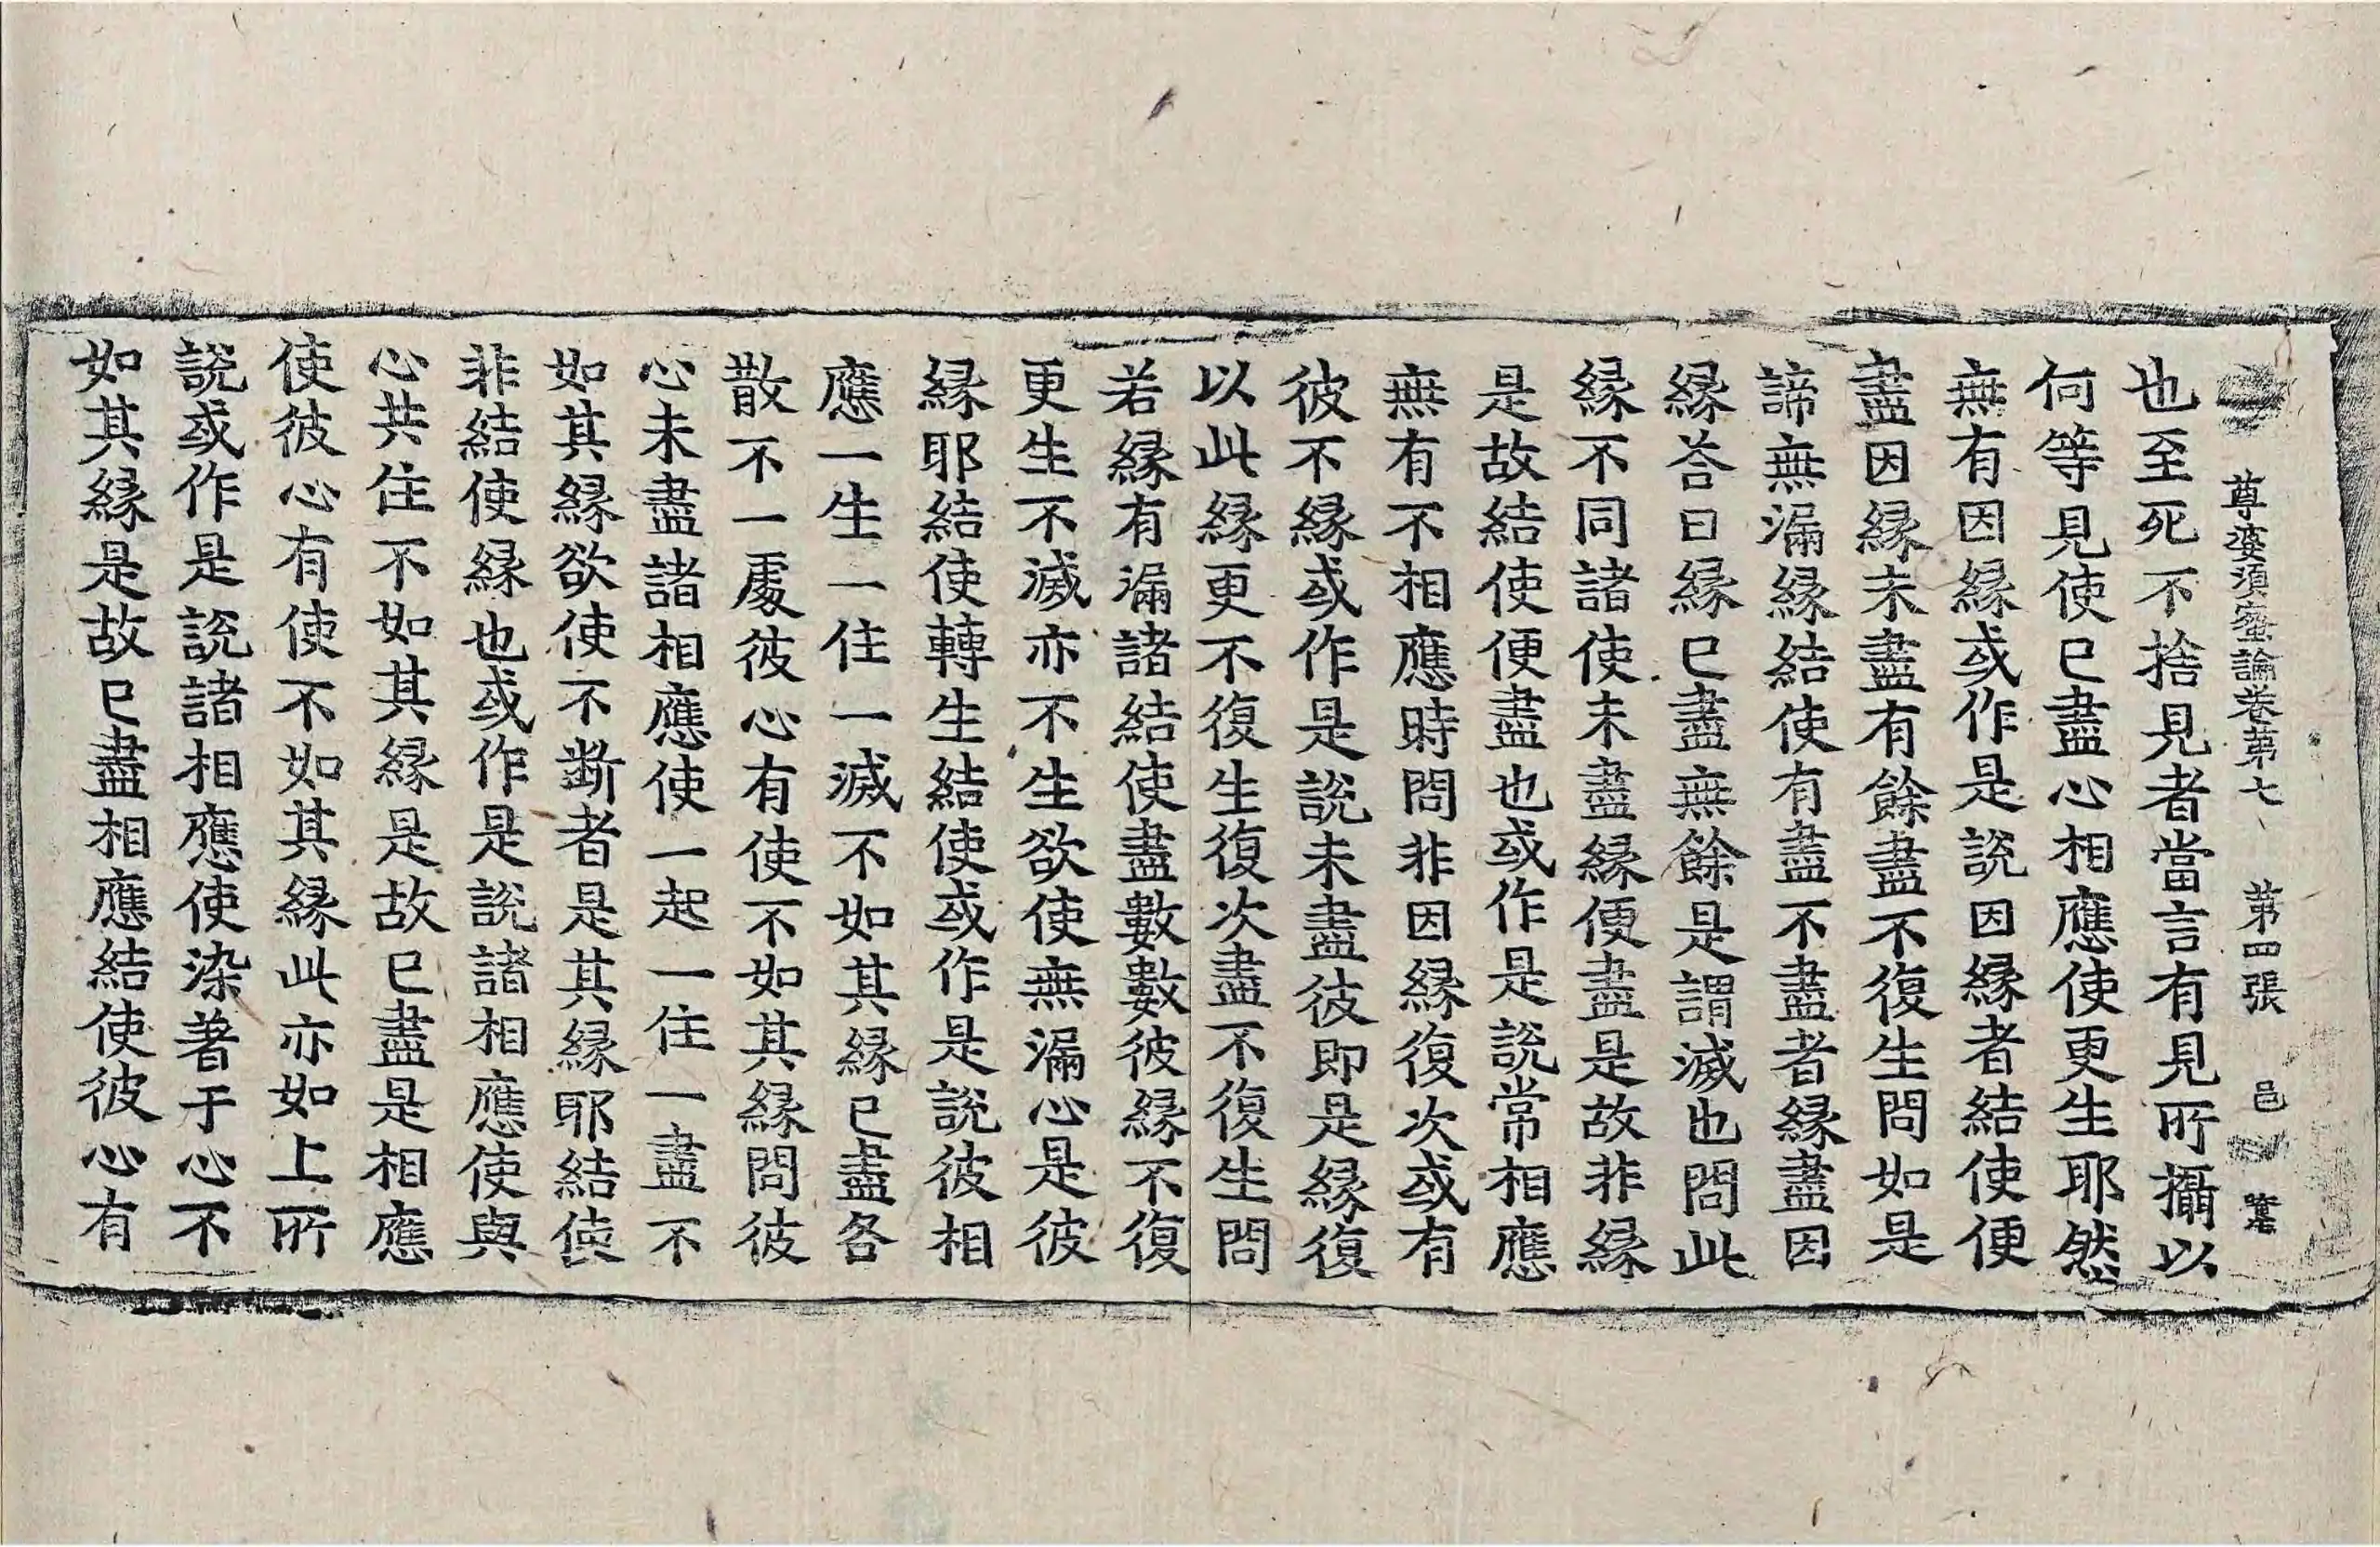 尊婆湏蜜論卷苐七　苐四張　邑
也至死不捨見者當言有見所攝以
何等見使已盡心相應使更生耶然
無有因縁或作是説因縁者結使便
盡因縁未盡有餘盡不復生問如是
諦無漏縁結使有盡不盡者縁盡因
縁荅曰縁已盡無餘是謂滅也問此
縁不同諸使未盡縁便盡是故非縁
是故結使便盡也或作是説常相應
無有不相應時問非因縁復次或有
彼不縁或作是説未盡彼即是縁復
以此縁更不復生復次盡不復生問
若縁有漏諸結使盡數數彼縁不復
更生不滅亦不生欲使無漏心是彼
縁耶結使轉生結使或作是説彼相
應一生一住一滅不如其縁已盡各
散不一處彼心有使不如其縁問彼
心未盡諸相應使一起一住一盡不
如其縁欲使不斷者是其縁耶結使
非結使縁也或作是説諸相應使與
心共住不如其縁是故已盡是相應
使彼心有使不如其縁此亦如上所
説或作是説諸相應使染著于心不
如其縁是故已盡相應結使彼心有